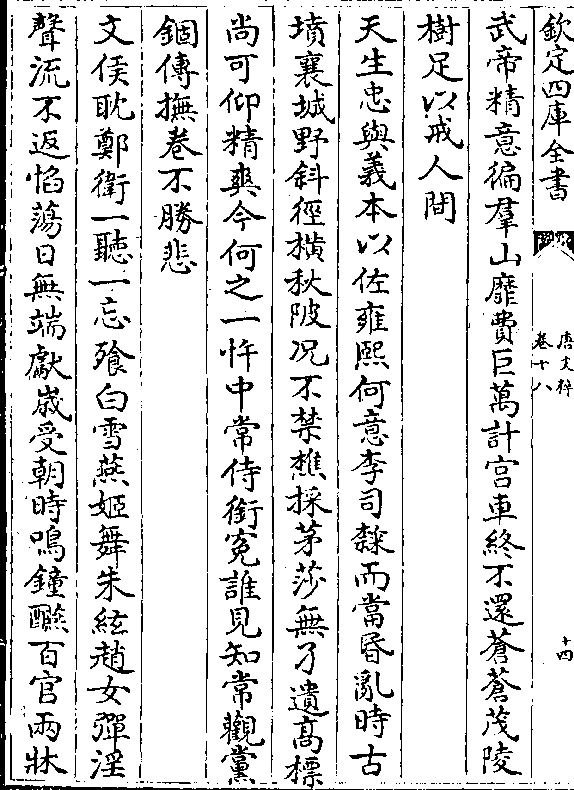 欽定四庫全書
唐文粹
卷十八
十四
武帝精意徧羣山靡費巨萬計宫車終不還蒼蒼茂陵
樹足以戒人間
天生忠與義本以佐雍熙何意李司隸而當昏亂時古
墳襄城野斜徑横秋陂况不禁樵採茅莎無孑遺髙標
尚可仰精爽今何之一忤中常侍銜寃誰見知常觀黨
錮傳撫卷不勝悲
文侯耽鄭衛一聽一忘飱白雪燕姬舞朱絃趙女彈淫
聲流不返慆蕩日無端獻嵗受朝時鳴鐘醼百官兩牀